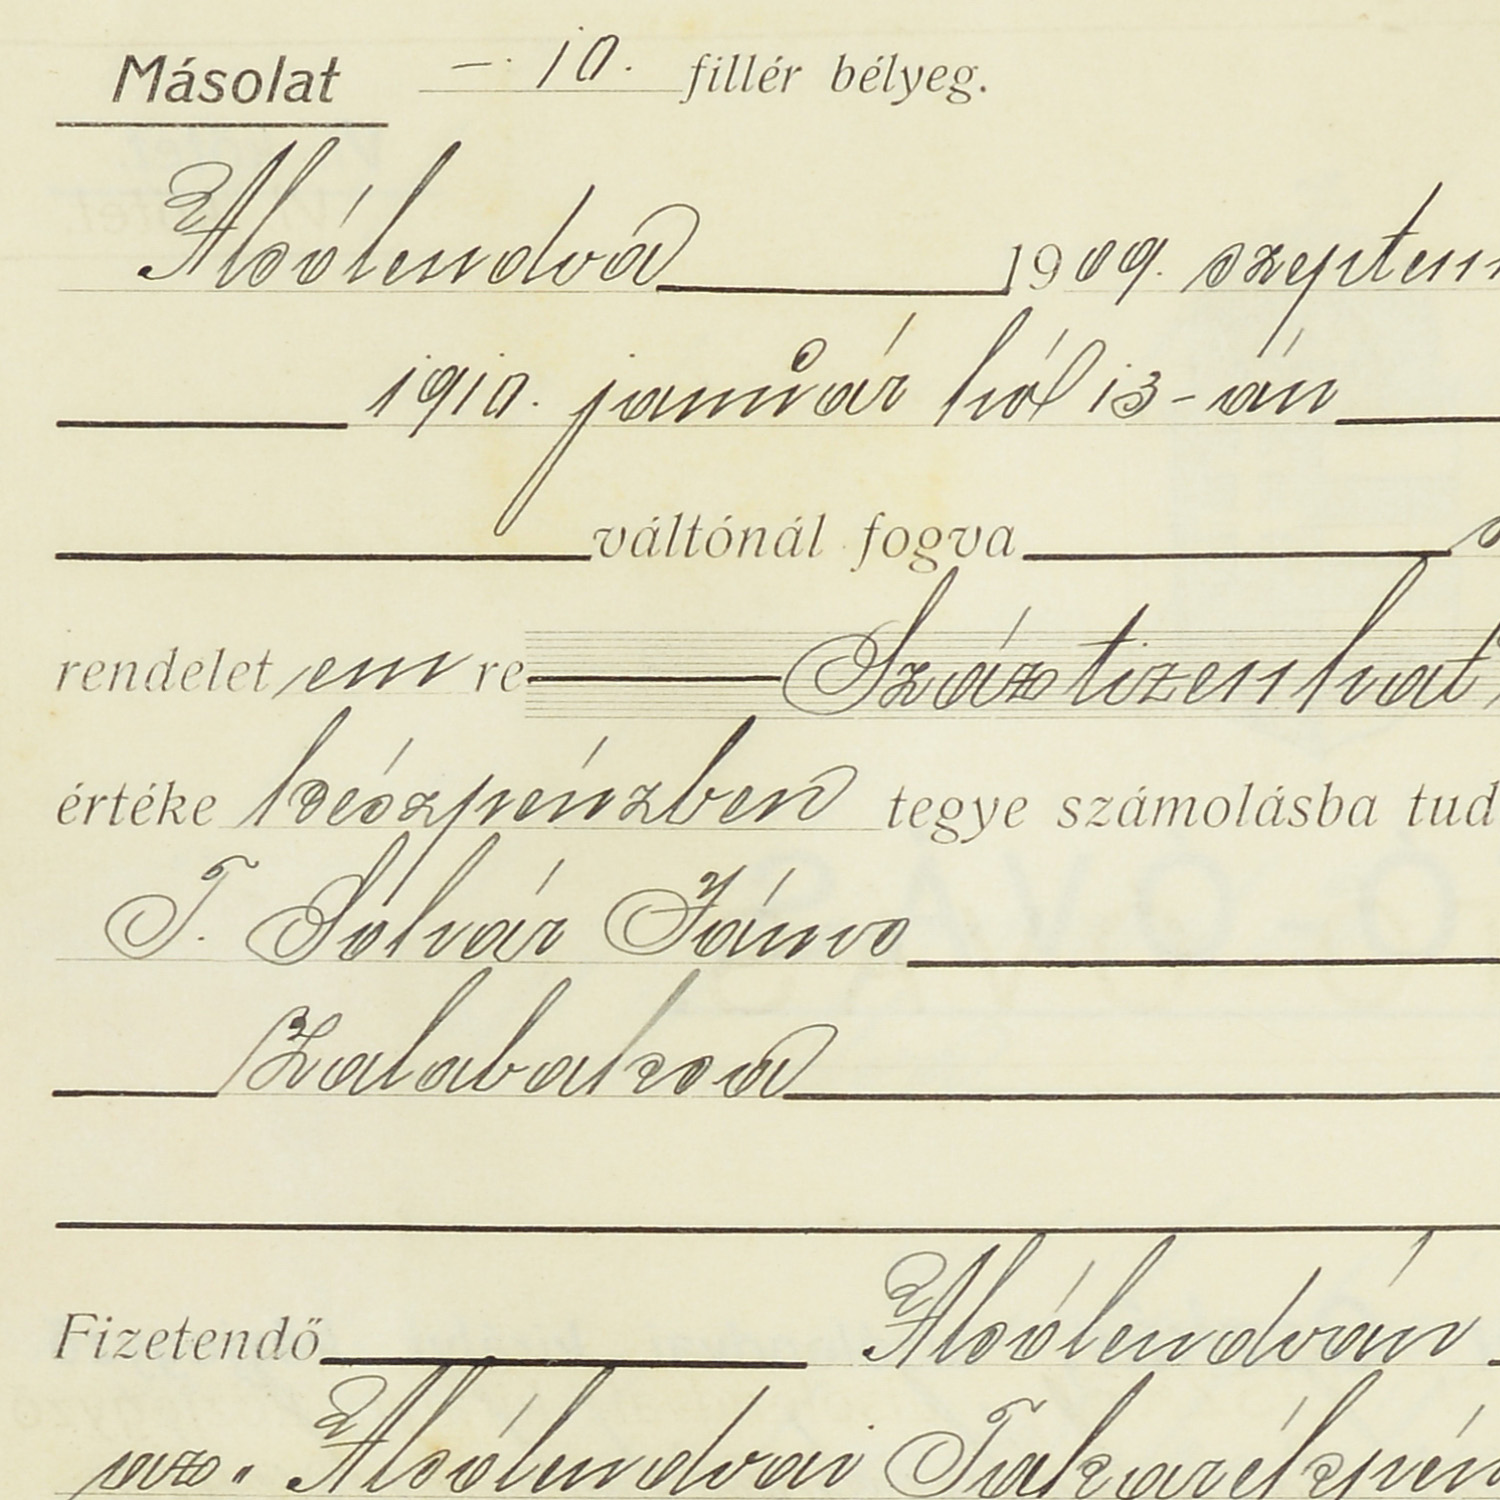 Másolat — 10. fillér bélyeg.
Alsólendva 1909. szeptem
1910. január hó 13-án
váltónál fogva
rendeletem re Száztizenhat
értéke készpénzben tegye számolásba tud
T. Sólvár János
Zalabaksa
Fizetendő Alsólendván
az. Alsólendvai Takarékpén